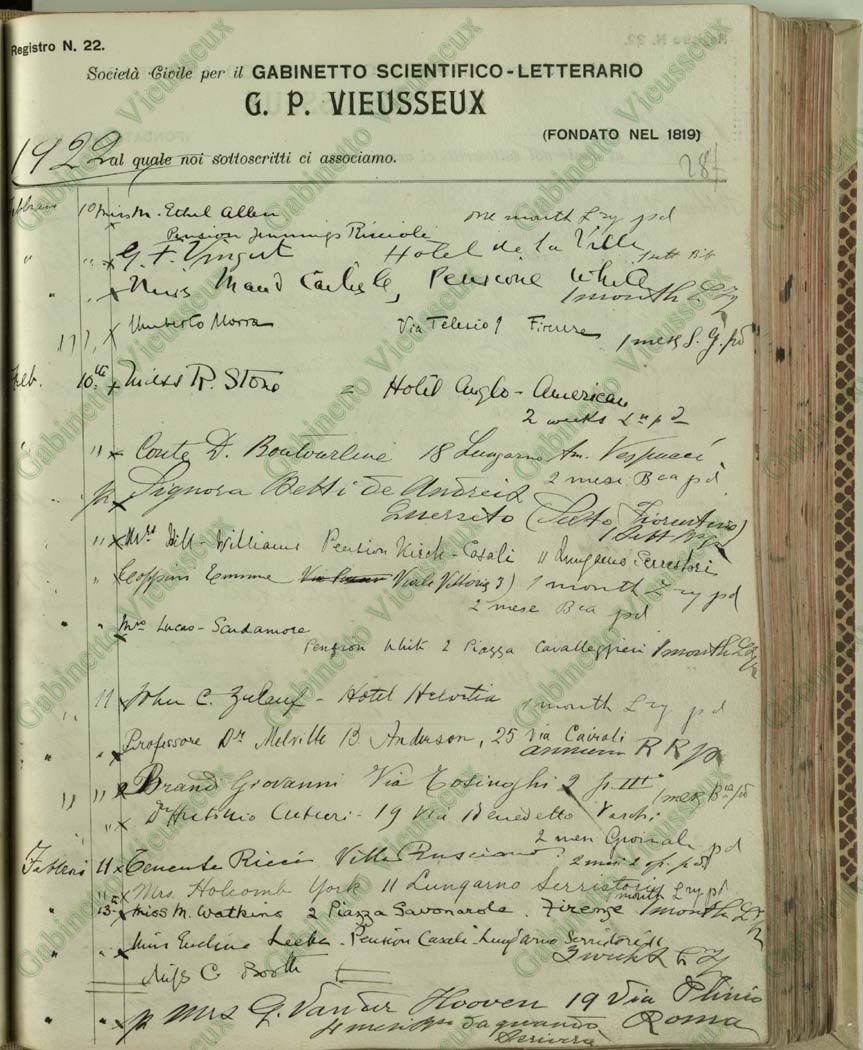 Registro N. 22.
Società Civile per il GABINETTO SCIENTIFICO-LETTERARIO
G. P. VIEUSSEUX
(FONDATO NEL 1819)
1922 al quale noi sottoscritti ci associamo.
287
10 Miss M. Ethel Allen one month L ry pd
Pension Jennings Riccioli
G. F. Hotel de la Ville
Miss Maud Carlisle, Pensione White
1 month
Umberto Morra Via Telesio 1 Firenze
1 mese S. G. pd
Feb. 10th Miss R. Stone = Hotel Anglo-American
2 weeks
11 Conte D. Boutourline 18 Lungarno Am. Vespucci
2 mese Bca pd
Signora Betti de Andreis
(Sesto Fiorentino)
1 sett
11 Mrs Hill-Williams Pension Kirch-Casali 11 Lungarno Serristori
Viale Vittoria 3) 1 month L ry pd
2 mese Bca pd
Mrs Lucas-Scudamore
Pension White 2 Piazza Cavalleggieri 1 month
11 John C. Zulauf - Hotel Helvetia 1 month L ry pd
Professore Dr Melville B. Anderson, 25 Via Cairoli
R R
11 Brandi Giovanni Via Tosinghi 2 p. III°
1 mese Bca pd
Cuturi - 19 Via Benedetto Varchi
2 mesi Giornali pd
Febbraio 11 Tenente Ricci Villa Rusciano
2 mesi
Mrs. Holcomb York 11 Lungarno Serristori
1 month L ry pd
13 Miss M. Watkins 2 Piazza Savonarola. Firenze 1 month
Miss Evelina Pension Casali-Lungarno Serristori 11
3 weeks L ry
Miss C. Booth
Mrs G. Vander Hooven 19 Via Plinio
4 mesi da quando Roma
scriverà